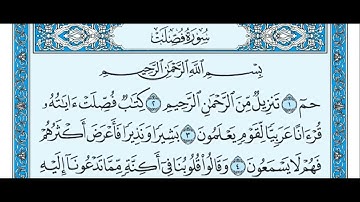 سُورَةُ فُصِّلَتْ
بِسْمِ ٱللَّهِ ٱلرَّحْمَٰنِ ٱلرَّحِيمِ
حمٓ ۝١ تَنزِيلٌ مِّنَ ٱلرَّحْمَٰنِ ٱلرَّحِيمِ ۝٢ كِتَٰبٌ فُصِّلَتْ ءَايَٰتُهُۥ
قُرْءَانًا عَرَبِيًّا لِّقَوْمٍ يَعْلَمُونَ ۝٣ بَشِيرًا وَنَذِيرًا فَأَعْرَضَ أَكْثَرُهُمْ
فَهُمْ لَا يَسْمَعُونَ ۝٤ وَقَالُوا۟ قُلُوبُنَا فِىٓ أَكِنَّةٍ مِّمَّا تَدْعُونَآ إِلَيْهِ